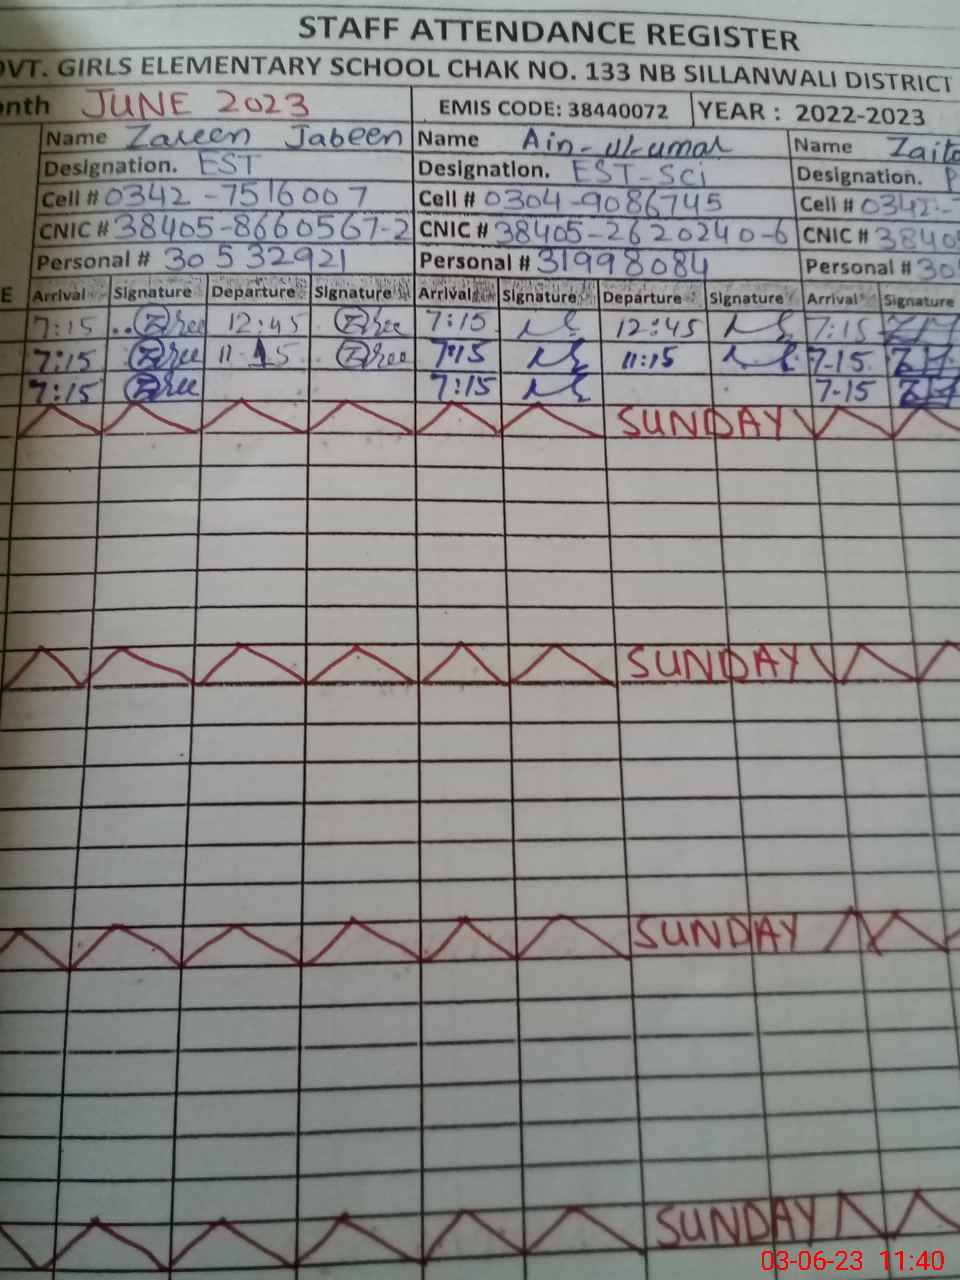 STAFF ATTENDANCE REGISTER
OVT. GIRLS ELEMENTARY SCHOOL CHAK NO. 133 NB SILLANWALI DISTRICT
onth JUNE 2023 EMIS CODE: 38440072 YEAR : 2022-2023
Name Zareen Jabeen Name Ain-ul-umar Name Zaito
Designation. EST Designation. EST-Sci Designation. P
Cell # 0342-7516007 Cell # 0304-9086745 Cell # 0342-
CNIC # 38405-8660567-2 CNIC # 38405-2620240-6 CNIC # 3840
Personal # 30532921 Personal # 31998084 Personal # 30
E Arrival Signature Departure Signature Arrival Signature Departure Signature Arrival Signature
7:15 12:45 7:15 12:45 7:15
7:15 11-15 7:15 11:15 7-15
7:15 7:15 7-15
SUNDAY
SUNDAY
SUNDAY
SUNDAY
03-06-23 11:40